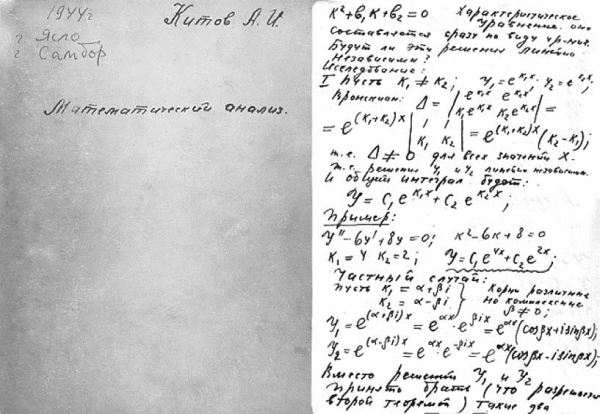 1944г
г. Ясло
г Самбор
Китов А. И.
Математический анализ.
K²+b₁K+b₂=0 Характеристическое
уравнение. оно
составляется сразу по виду ур-ния.
Будут ли эти решения линейно
независимы?
Исследование:
I Пусть K₁ ≠ K₂; y₁=e^{K₁x}, y₂=e^{K₂x};
Вронскиан: Δ = | e^{K₁x} e^{K₂x} | =
| K₁e^{K₁x} K₂e^{K₂x} |
= e^{(K₁+K₂)x} | 1 1 | = e^{(K₁+K₂)x}(K₂-K₁);
| K₁ K₂ |
т.е. Δ ≠ 0 для всех значений X.
т.е. решения y₁ и y₂ линейно независимы.
И общий интеграл будет:
y = C₁e^{K₁x}+C₂e^{K₂x};
Пример:
y''-6y'+8y=0; K²-6K+8=0
K₁=4 K₂=2; y=C₁e^{4x}+C₂e^{2x};
Частный случай:
Пусть K₁=α+βi } Корни различные
K₂=α-βi } но комплексные
β≠0;
y₁=e^{(α+βi)x}=e^{αx}·e^{βix}=e^{αx}(cosβx+isinβx);
y₂=e^{(α-βi)x}=e^{αx}·e^{-βix}=e^{αx}(cosβx-isinβx);
Вместо решений y₁ и y₂
принято брать (что разрешено
второй теоремой) такие два